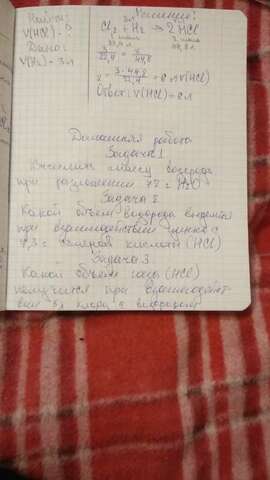 Найти:
V(HCl) = ?
Дано:
V(H₂) = 3л
Решение:
3л
Cl₂ + H₂ → 2HCl
1 моль 2 моль
22,4 л 44,8 л
3/22,4 = x/44,8
= 3 · 44,8 / 22,4 = 6 л V(HCl)
Ответ: V(HCl) = 6 л
Домашняя работа
Задача 1
массу водорода
при разложении H₂O
Задача 2
Какой объём водорода
при взаимодействии цинка с
соляной кислоты (HCl)
Задача 3
Какой объём газа (HCl)
получится при взаимодейст
вии 5л хлора с водородом